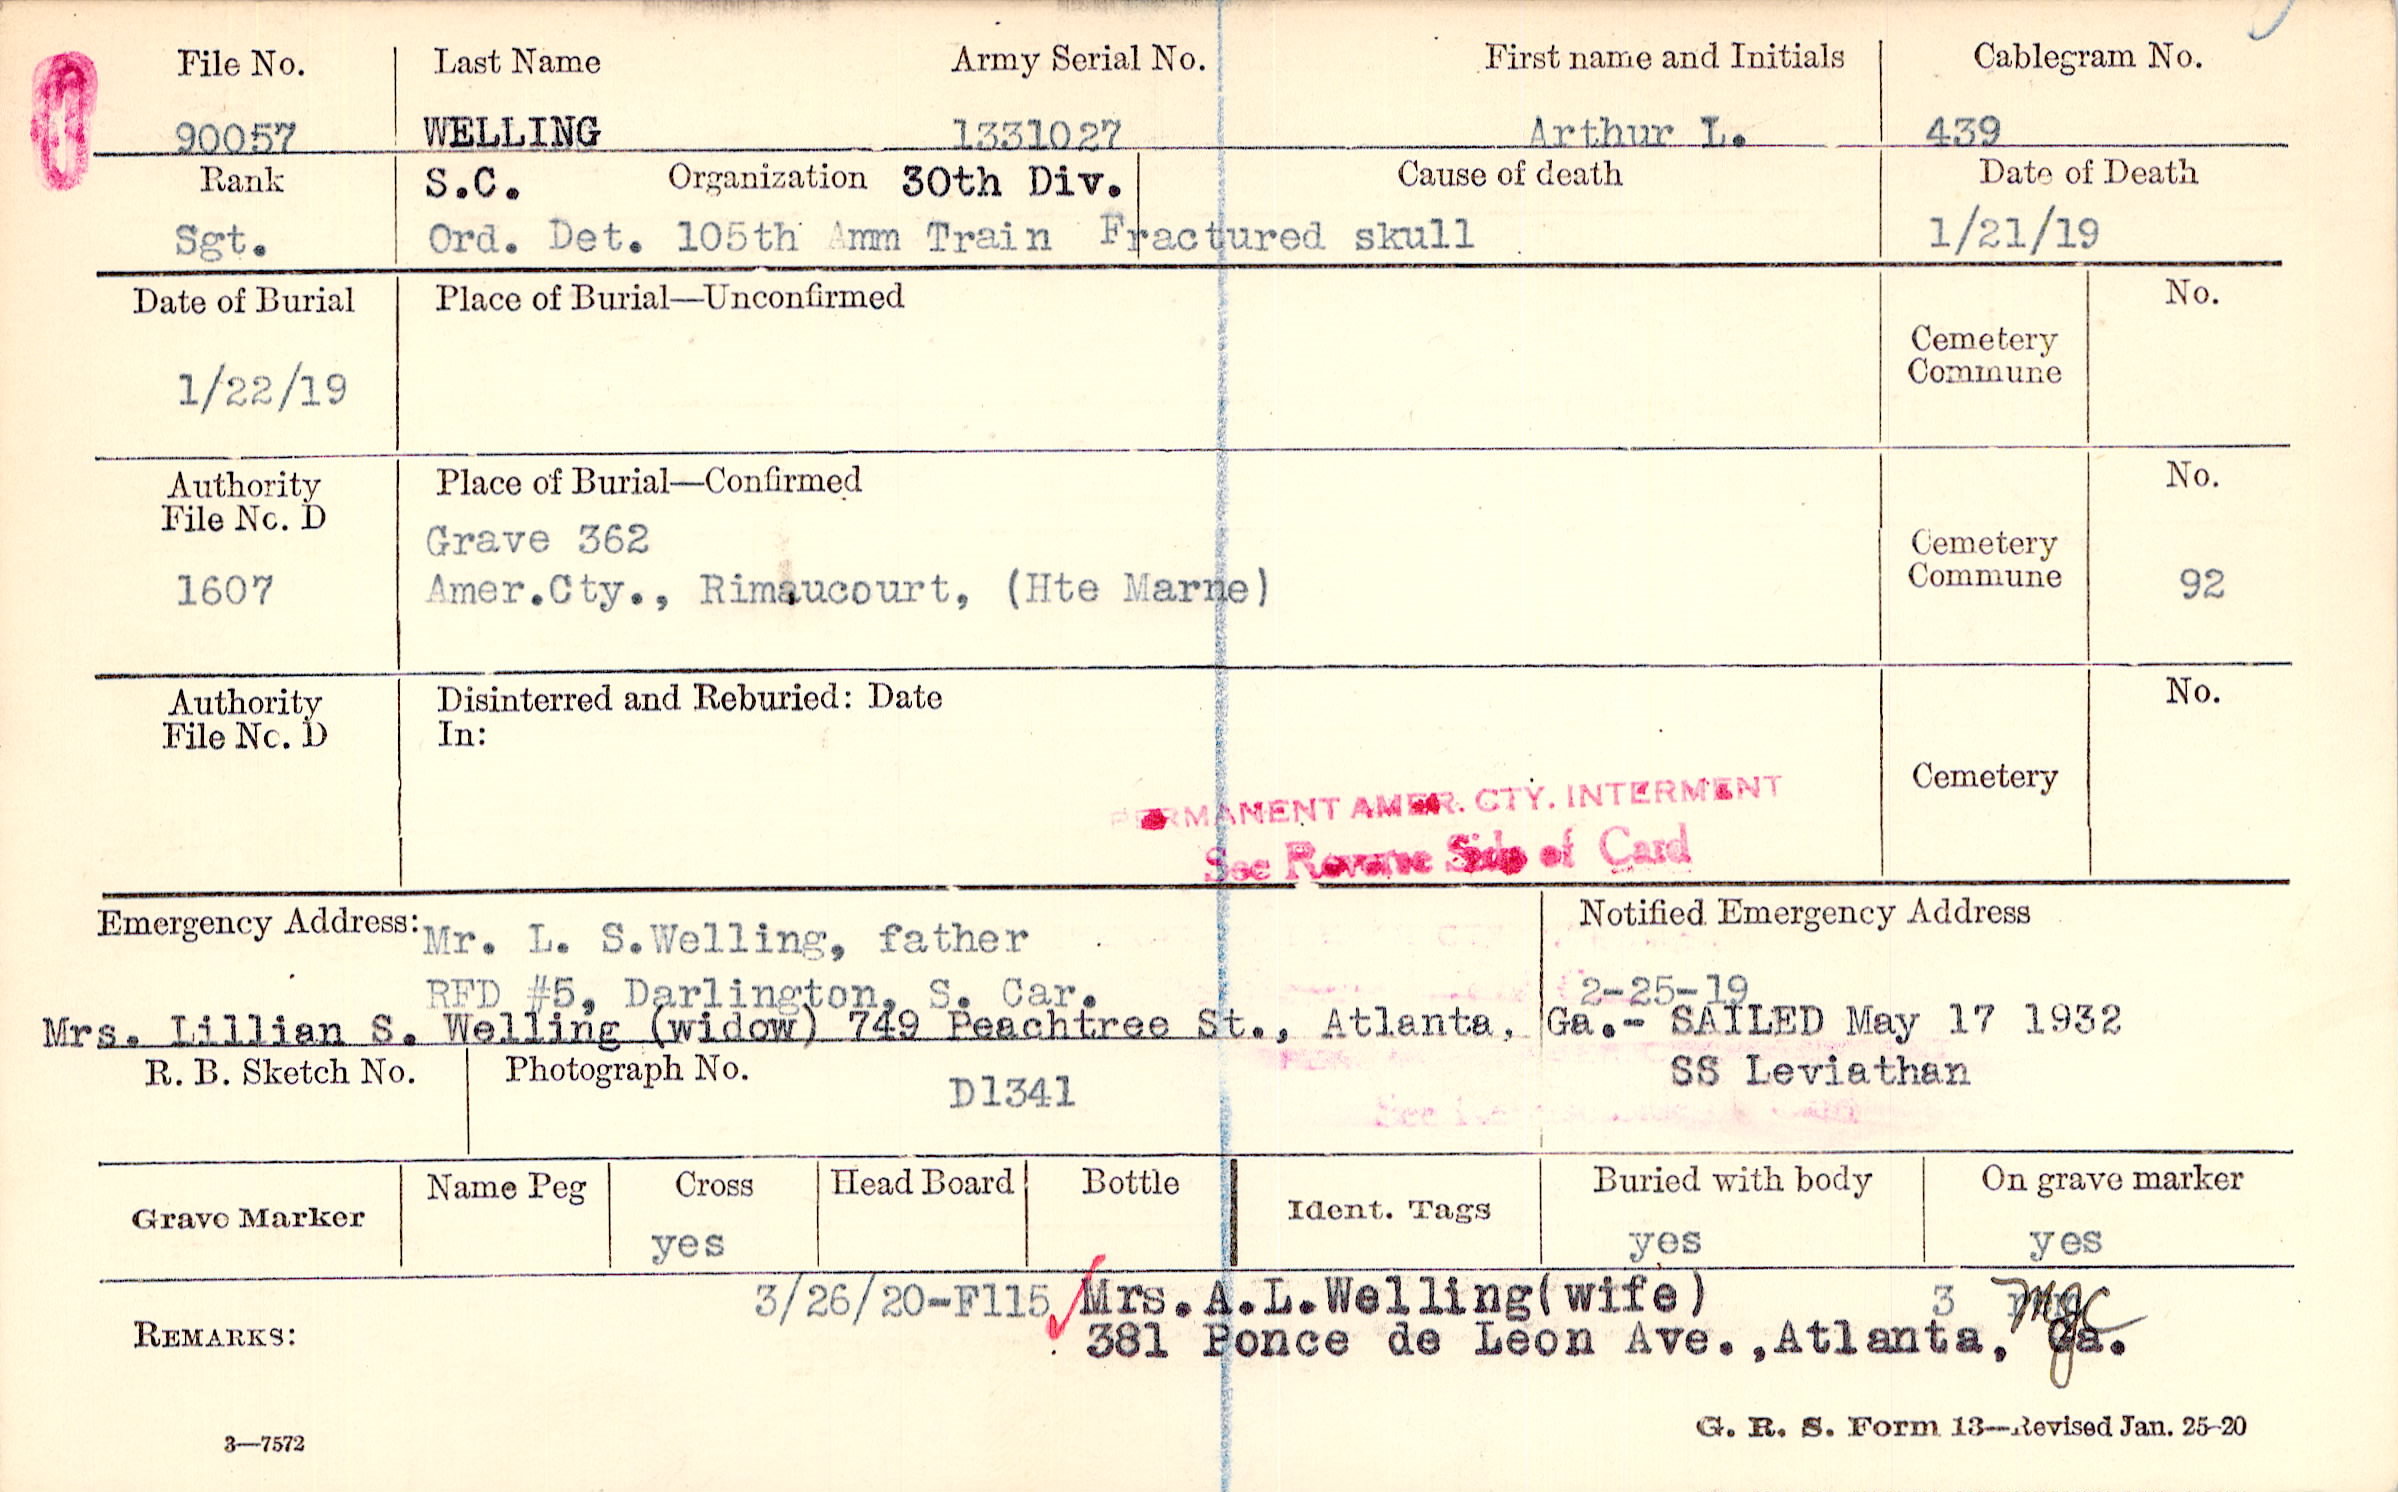 File No. Last Name Army Serial No. First name and Initials Cablegram No.
90057 WELLING 1331027 Arthur L. 439
Rank S.C. Organization 30th Div. Cause of death Date of Death
Sgt. Ord. Det. 105th Amm Train Fractured skull 1/21/19
Date of Burial Place of Burial—Unconfirmed No.
Cemetery
Commune
1/22/19
Authority Place of Burial—Confirmed No.
File No. D
Grave 362 Cemetery
1607 Amer.Cty., Rimaucourt, (Hte Marne) Commune 92
Authority Disinterred and Reburied: Date No.
File No. D In:
Cemetery
PERMANENT AMER. CTY. INTERMENT
See Reverse Side of Card
Emergency Address: Mr. L. S.Welling, father Notified Emergency Address
RFD #5, Darlington, S. Car. 2-25-19
Mrs. Lillian S. Welling (widow) 749 Peachtree St., Atlanta, Ga.- SAILED May 17 1932
R. B. Sketch No. Photograph No. D1341 SS Leviathan
Name Peg Cross Head Board Bottle Buried with body On grave marker
Grave Marker Ident. Tags
yes yes yes
3/26/20-F115 Mrs.A.L.Welling(wife) 3 MJC
REMARKS: 381 Ponce de Leon Ave.,Atlanta, Ga.
3—7572 G. R. S. Form 13—Revised Jan. 25-20